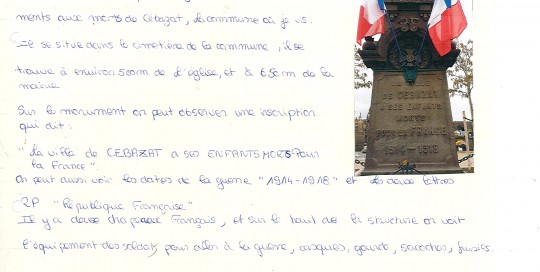 ments aux morts de Cébazat, la commune où je vis.
Il se situe dans le cimetière de la commune, il se
trouve à environ 500m de l'église, et à 650m de la
mairie
Sur le monument on peut observer une inscription
qui dit:
"La ville de CEBAZAT a ses ENFANTS MORTS Pour
la France".
On peut aussi voir les dates de la guerre "1914-1918" et les deux lettres
RP "République Française"
Il y a deux drapeaux Français, et sur le haut de la structure on voit
l'équipement des soldats, pour aller à la guerre, casques, gourde, sacoches, fusils.
DE CEBAZAT
A SES ENFANTS
MORTS
POUR LA FRANCE
1914-1918